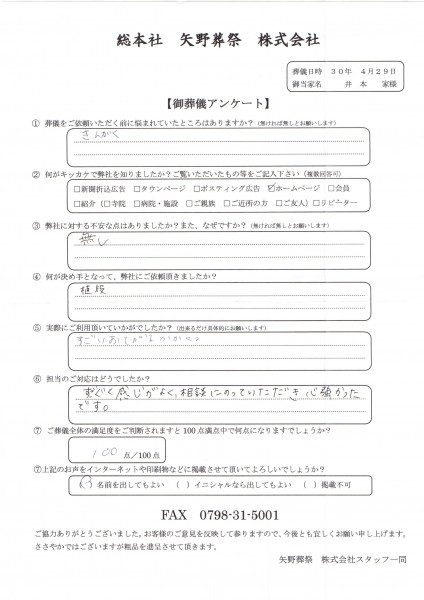 総本社　矢野葬祭　株式会社
葬儀日時　３０年　４月２９日
御当家名　井　本　家様
【御葬儀アンケート】
① 葬儀をご依頼いただく前に悩まれていたところはありますか？（無ければ無しとお願いします）
きんがく
② 何がキッカケで弊社を知りましたか？ご覧いただいたもの等をご記入下さい（複数回答可）
□新聞折込広告　□タウンページ　□ポスティング広告　☑ホームページ　□会員
□紹介（□寺院　□病院・施設　□ご親族　□ご近所の方　□ご友人）□リピーター
③ 弊社に対する不安な点はありますか？また、なぜですか？（無ければ無しとお願いします）
無し
④ 何が決め手となって、弊社にご依頼頂きましたか？
値段
⑤ 実際にご利用頂いていかがでしたか？（出来るだけ具体的にお願いします）
すごい
⑥ 担当のご対応はどうでしたか？
すごく感じがよく、相談にのっていただき心強かった
です。
⑦ ご葬儀全体の満足度をご判断されますと100点満点中で何点になりますでしょうか？
100 点/100点
⑦上記のお声をインターネットや印刷物などに掲載させて頂いてよろしいでしょうか？
(○) 名前を出してもよい　(　) イニシャルなら出してもよい　(　) 掲載不可
FAX　0798-31-5001
ご協力ありがとうございました。お客様のご意見を反映して参りますので、今後とも宜しくお願い申し上げます。
ささやかではございますが粗品を進呈させて頂きます。
矢野葬祭　株式会社スタッフ一同